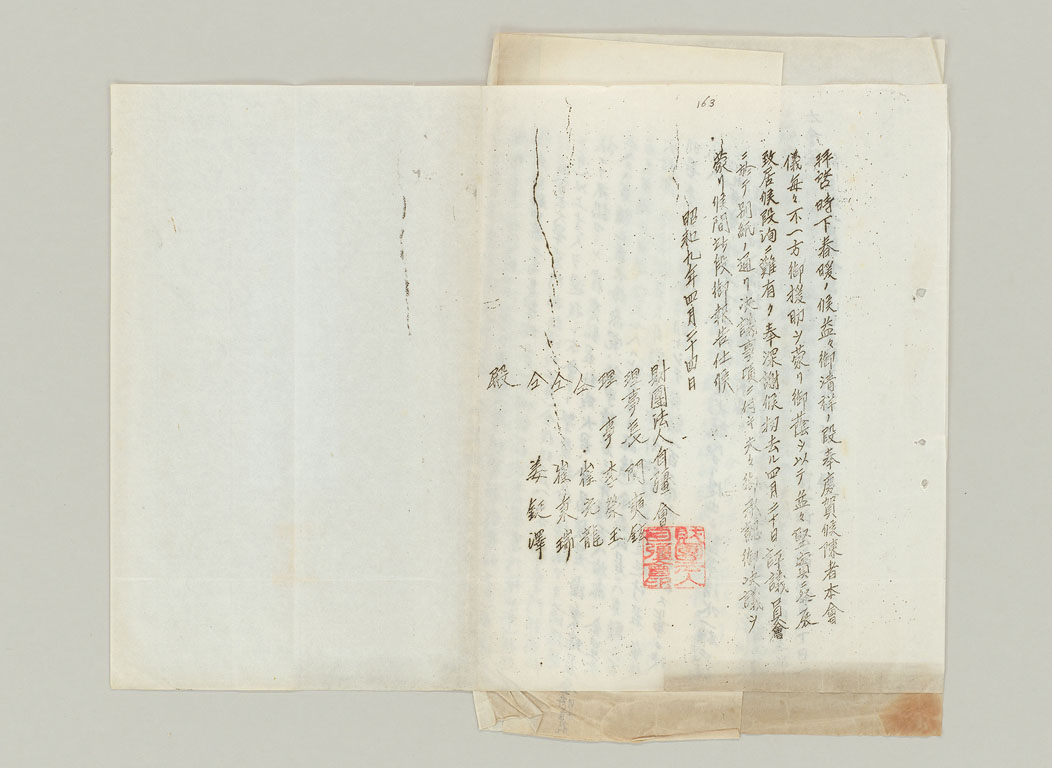 163
拝啓時下春暖ノ候益々御清祥ノ段奉慶賀候陳者本會
儀毎々不一方御援助ヲ蒙リ御蔭ヲ以テ益々堅實ニ発展
致居候段洵ニ難有ク奉深謝候扨去ル四月二十日評議員會
ニ於テ別紙ノ通リ決議事項ニ付キ夫々御承認御決議ヲ
蒙リ候間此段御報告仕候
昭和九年四月二十四日
財團法人自彊會
理事長 閔
理事 李榮玉
仝 崔元龍
仝 崔秉瑞
仝 姜鋌澤
殿
財團法人自彊會印